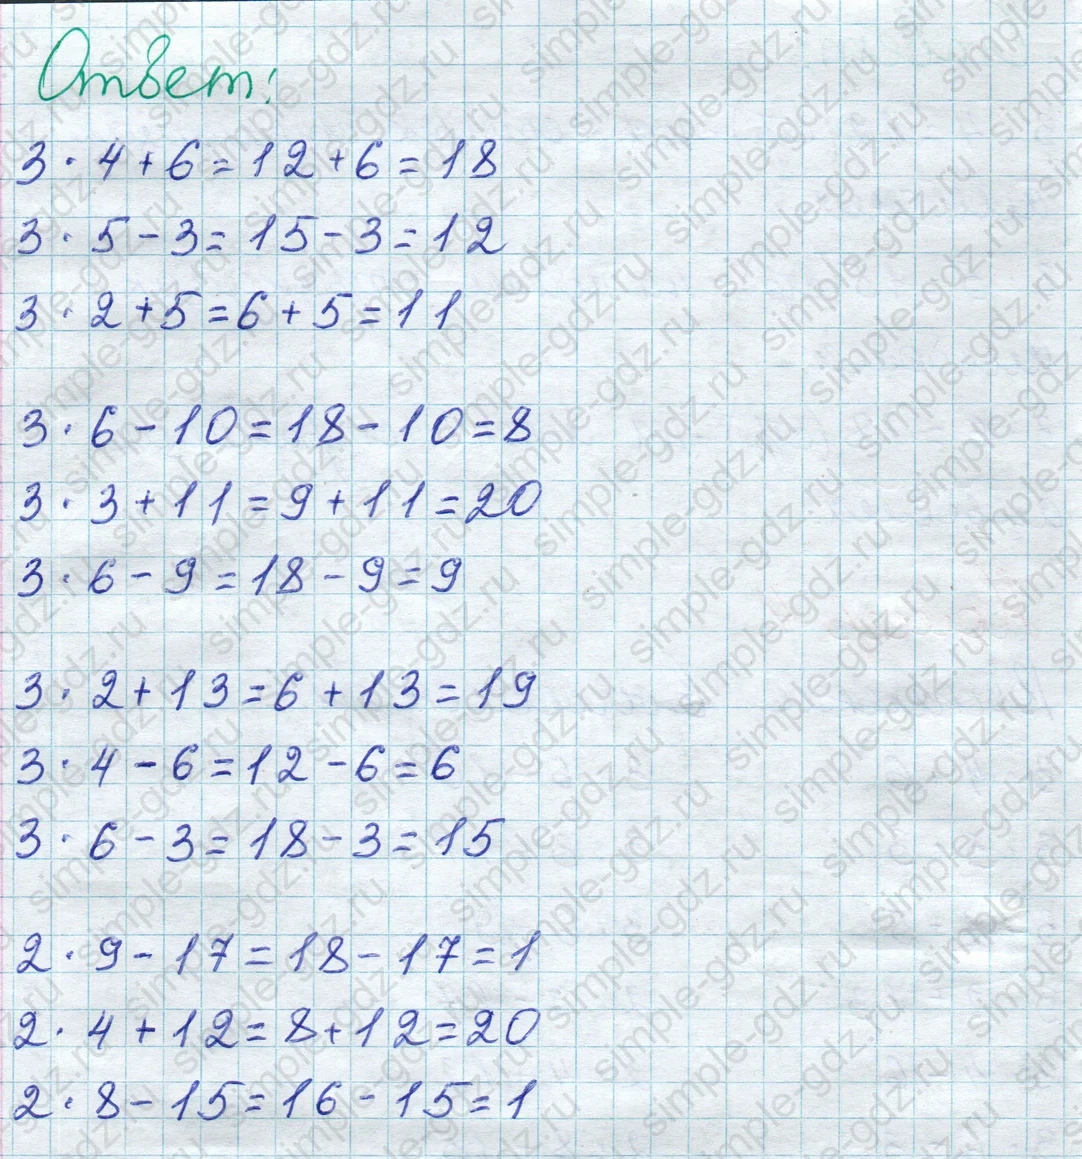 Ответ:
3 · 4 + 6 = 12 + 6 = 18
3 · 5 - 3 = 15 - 3 = 12
3 · 2 + 5 = 6 + 5 = 11
3 · 6 - 10 = 18 - 10 = 8
3 · 3 + 11 = 9 + 11 = 20
3 · 6 - 9 = 18 - 9 = 9
3 · 2 + 13 = 6 + 13 = 19
3 · 4 - 6 = 12 - 6 = 6
3 · 6 - 3 = 18 - 3 = 15
2 · 9 - 17 = 18 - 17 = 1
2 · 4 + 12 = 8 + 12 = 20
2 · 8 - 15 = 16 - 15 = 1
simple-gdz.ru